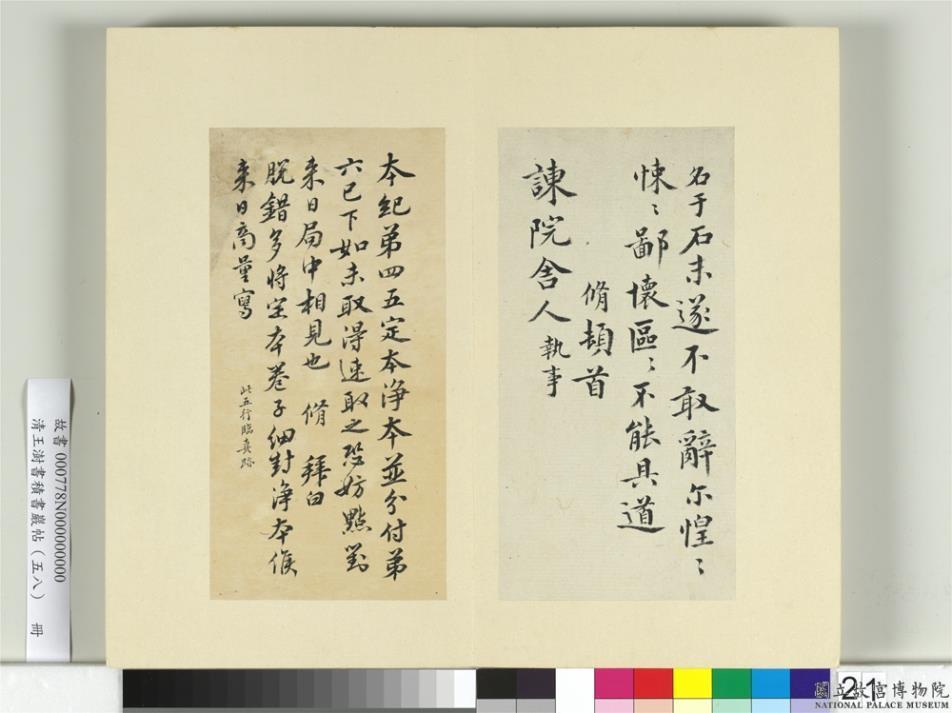 名于石未遂不敢辭尔惶〻
悚〻鄙懷區〻不能具道
脩頓首
諫院舍人執事
本紀弟四五定本淨本並分付弟
六已下如未取得速取之恐妨點對
來日局中相見也 脩 拜白
脫錯多將定本卷子細對淨本候
來日商量寫
此五行臨真跡
故書 000778N000000000
清王澍書積書巖帖(五八) 冊
21
國立故宮博物院
NATIONAL PALACE MUSEUM